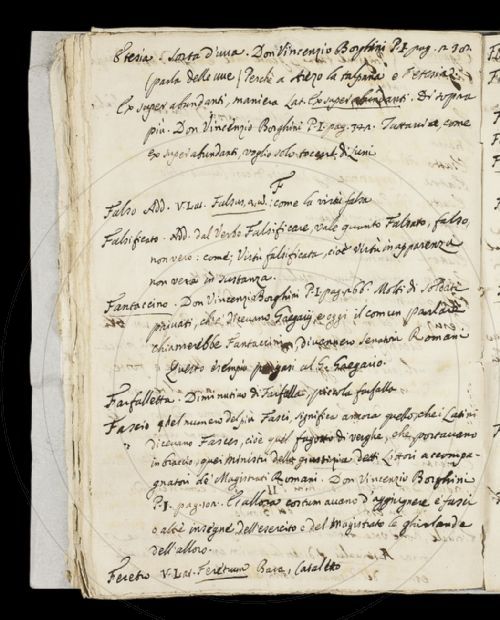 Etesia. Sorta d'uva. Don Vincenzio Borghini P. I. pag. 
(parla delle uve) Perchè a
Ex superabundanti, maniera Lat. Ex superabundanti. Di sopra
più. Don Vincenzio Borghini P. I. pag. Tuttavia, come
ex superabundanti, voglio solo di Luni
F
Falso Add. V. Lat. Falsus, a, um: come la virtù falsa
Falsificato. Add. dal Verbo Falsificare, vale quanto Falsato, falso,
non vero: come, Virtù falsificata, cioè Virtù in apparenza
non vera in sustanza.
Fantaccino. Don Vincenzio Borghini P. I. pag. 266. Molti di Soldati
privati, che dicevano Gregarij, e oggi il comun parlare
chiamerebbe Fantaccini, divennero Senatori Romani
Questo esempio al G. Gregario.
Farfalletta. Diminutivo di Farfalla, piccola farfalla
Fascio nel numero del più Fasci, significa ancora quello, che i Latini
dicevano Fasces, cioè quel fagotto di verghe, che portavano
in braccio, quei ministri della giustizia detti Littori accompa-
gnatori de' Magistrati Romani. Don Vincenzio Borghini
P. I. pag. E allora costumavano d'aggiugnere a' fasci
o altre insegne dell'esercito o del magistrato le ghirlande
dell'alloro.
Feretro V. Lat. Feretrum Bara, Cataletto